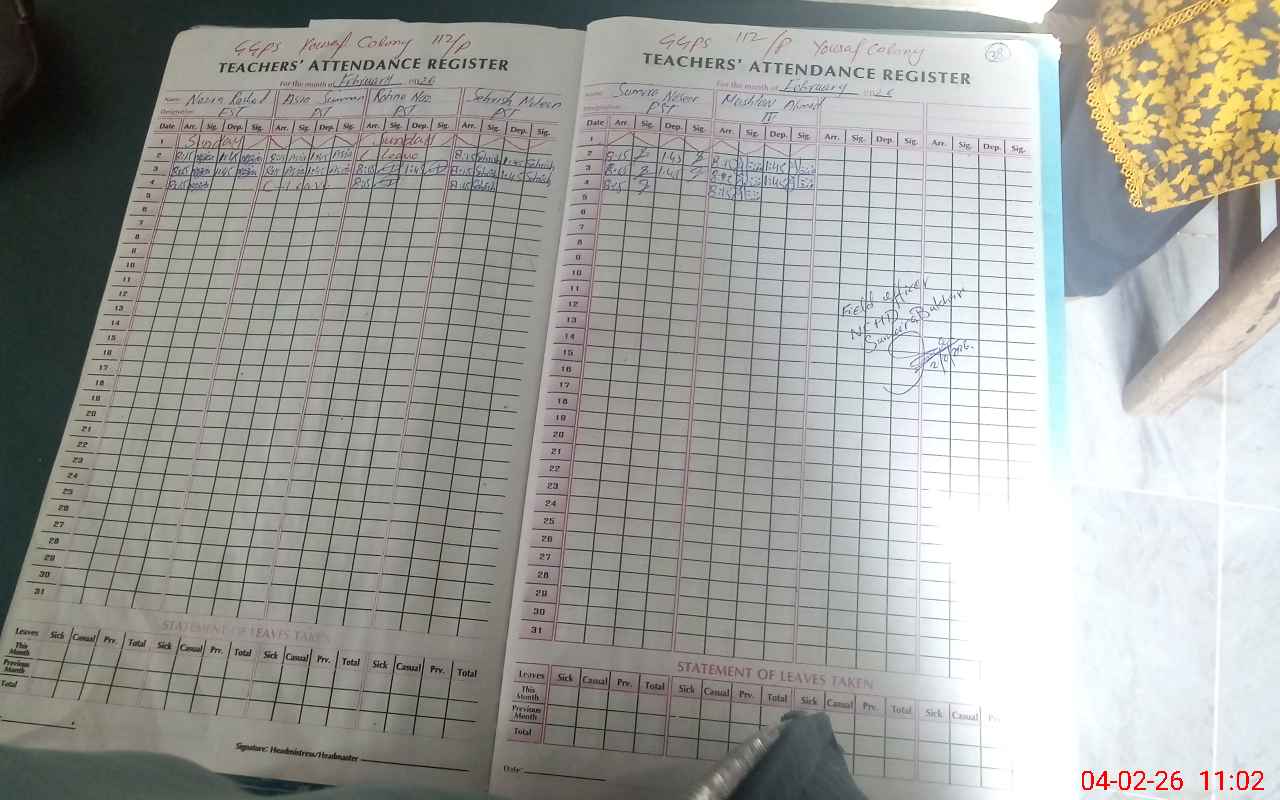 GGPS Yousaf Colony 112/P
TEACHERS' ATTENDANCE REGISTER
For the month of February 2026
Name: Nazia Rashed Asia Summan Rahina Naz Sehrish Noreen
Designation: PST PST PST
Date Arr. Sig. Dep. Sig. Arr. Sig. Dep. Sig. Arr. Sig. Dep. Sig. Arr. Sig. Dep. Sig.
1 Sunday Sunday
2 8:15 1:45 Asia Asia Leave 8:15 Sehrish 1:45 Sehrish
3 8:15 1:45 Asia 8:15 1:45 8:15 Sehrish 1:45 Sehrish
4 8:15 C-Leave 8:15 8:15 Sehrish
5
6
7
8
9
10
11
12
13
14
15
16
17
18
19
20
21
22
23
24
25
26
27
28
29
30
31
STATEMENT OF LEAVES TAKEN
Leaves Sick Casual Prv. Total Sick Casual Prv. Total Sick Casual Prv. Total Sick Casual Prv. Total
This Month
Previous Month
Total
Signature: Headmistress/Headmaster
GGPS 112/P Yousaf Colony
38
TEACHERS' ATTENDANCE REGISTER
For the month of February 2026
Name: Sumera Naseer Mushtaq Ahmad
Designation: PST
Date Arr. Sig. Dep. Sig. Arr. Sig. Dep. Sig. Arr. Sig. Dep. Sig. Arr. Sig. Dep. Sig.
1
2 8:15 1:45 8:15 1:45
3 8:15 1:45 1:45
4 8:15 8:15
5
6
7
8
9
10
11
12
13
14
15
16
17
18
19
20
21
22
23
24
25
26
27
28
29
30
31
Field officer
NCHD
Sumera Bukhari
STATEMENT OF LEAVES TAKEN
Leaves Sick Casual Prv. Total Sick Casual Prv. Total Sick Casual Prv. Total Sick Casual
This Month
Previous Month
Total
Date:
04-02-26 11:02